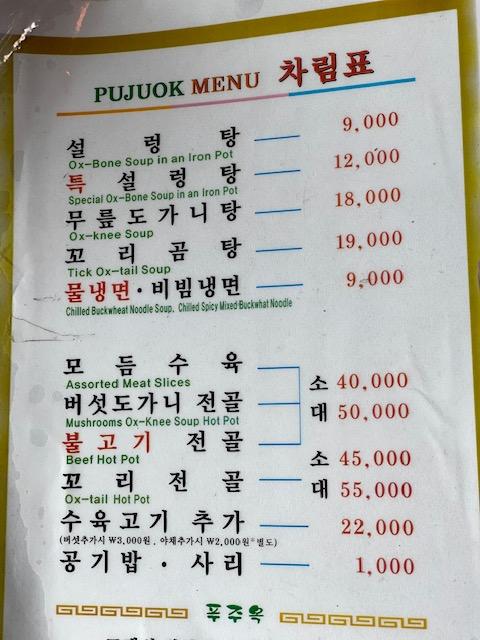 PUJUOK MENU 차림표
설렁탕 9,000
Ox-Bone Soup in an Iron Pot
특설렁탕 12,000
Special Ox-Bone Soup in an Iron Pot
무릎도가니탕 18,000
Ox-knee Soup
꼬리곰탕 19,000
Tick Ox-tail Soup
물냉면·비빔냉면 9,000
Chillled Buckwheat Noodle Soup, Chilled Spicy Mixed Buckwhat Noodle
모듬수육
Assorted Meat Slices
소 40,000
버섯도가니 전골
대 50,000
Mushrooms Ox-Knee Soup Hot Pot
불고기 전골
Beef Hot Pot
소 45,000
꼬리전골
대 55,000
Ox-tail Hot Pot
수육고기 추가 22,000
(버섯추가시 ₩3,000원, 야채추가시 ₩2,000원*별도)
공기밥·사리 1,000
푸주옥